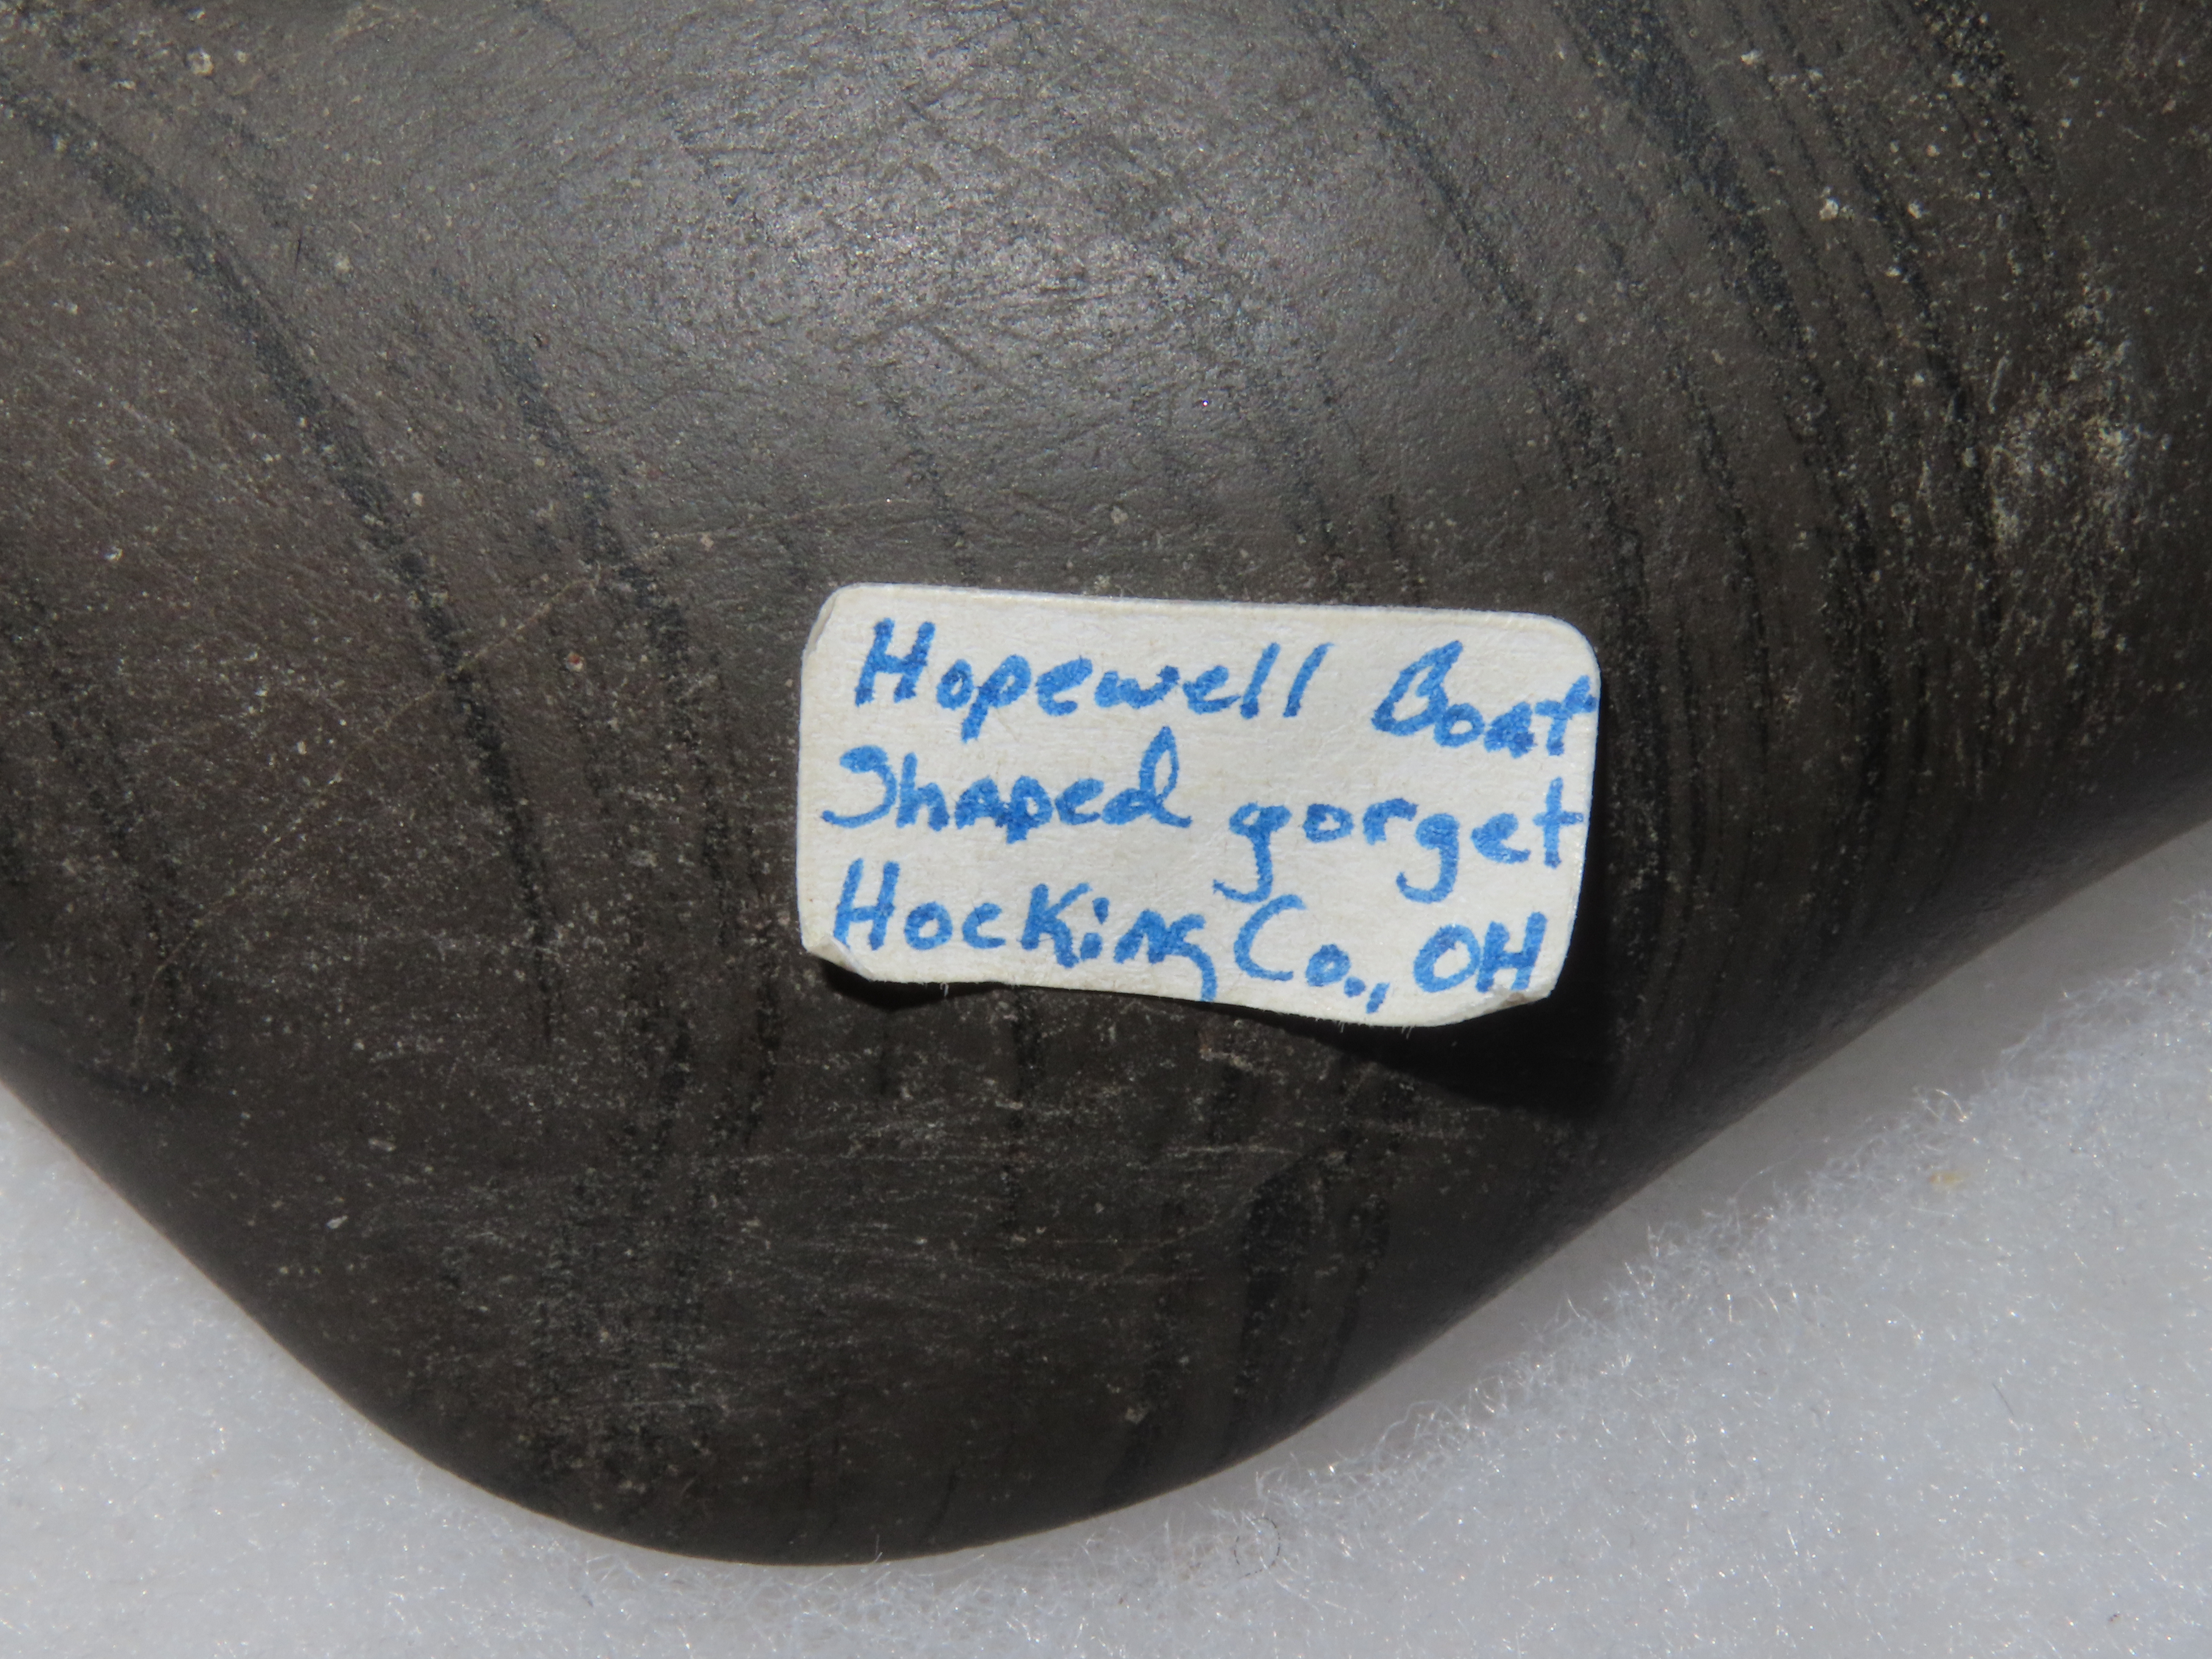 Hopewell Boat
Shaped gorget
Hocking Co., OH